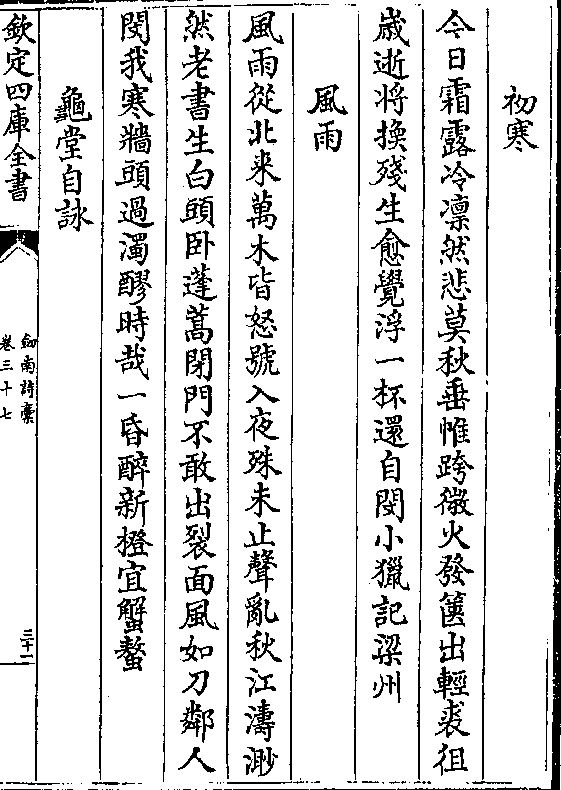 初寒
今日霜露冷凛然悲莫秋垂帷跨微火發篋出輕裘徂
歲逝将換殘生愈覺浮一杯還自閔小獵記梁州
風雨
風雨從北来萬木皆怒號入夜殊未止聲亂秋江濤渺
然老書生白頭卧蓬蒿閉門不敢出裂面風如刀鄰人
閔我寒牆頭過濁醪時哉一昏醉新橙宜蟹螯
龜堂自詠
欽定四庫全書
劒南詩稾
卷三十七
三十一